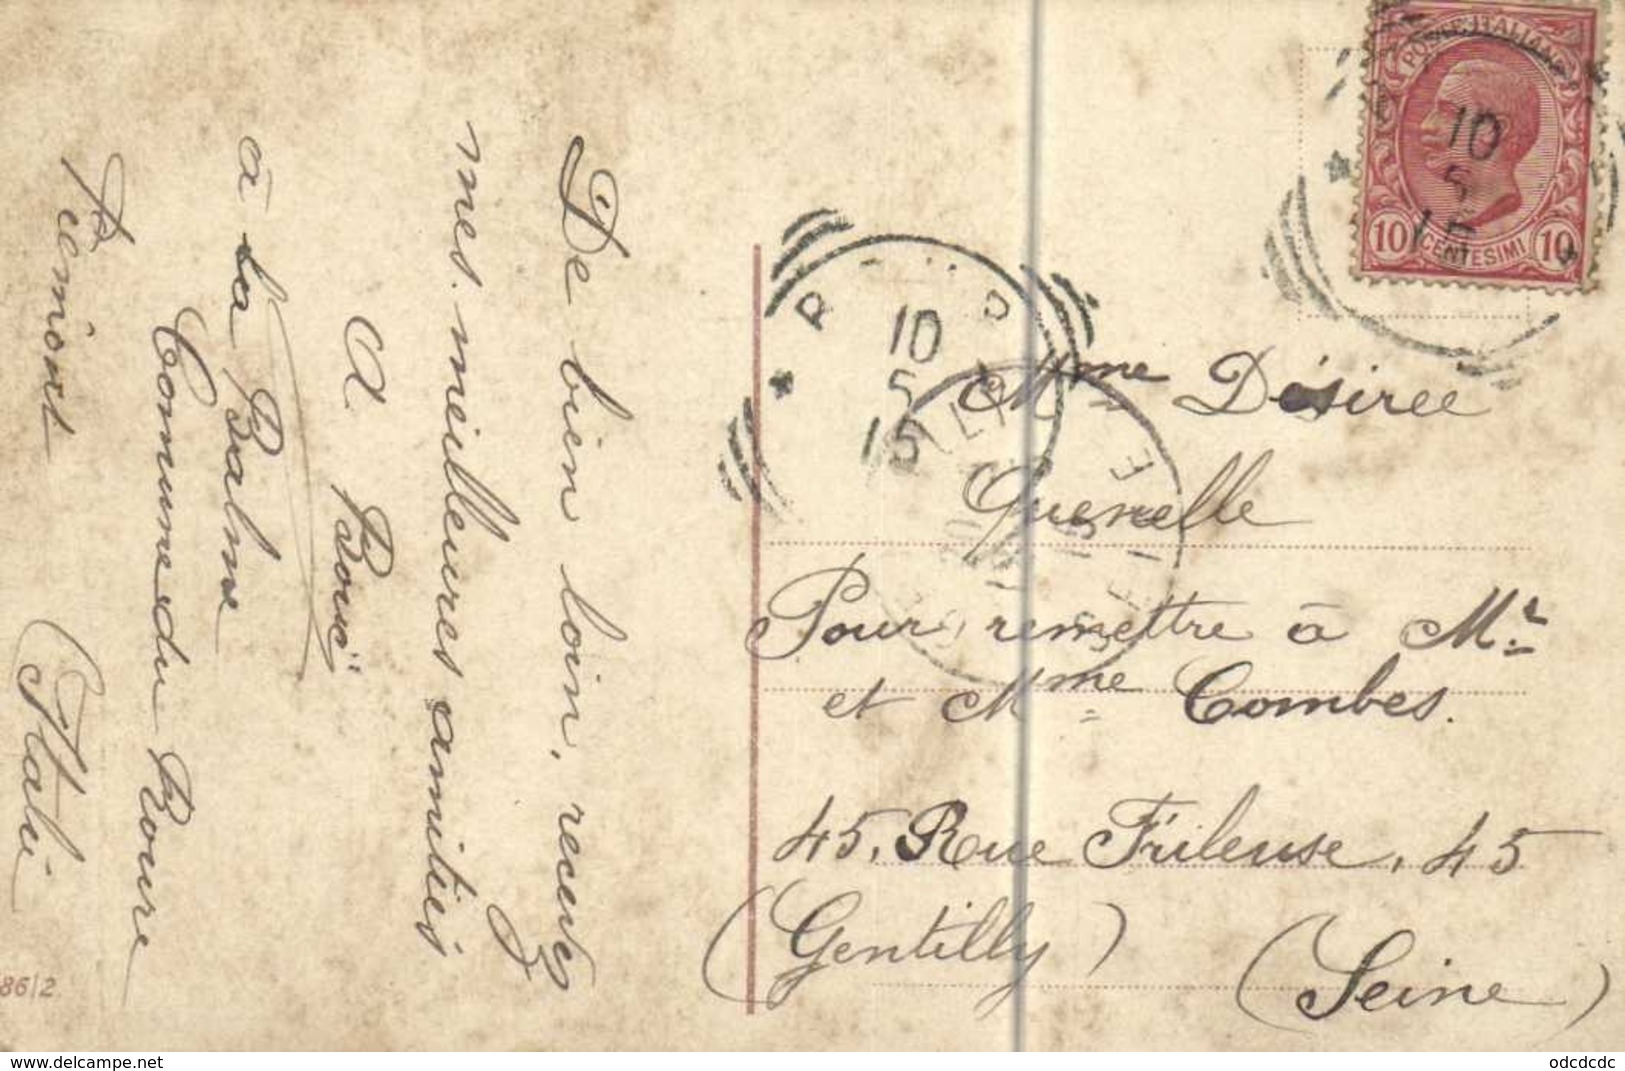 De bien loin, recevez
mes meilleures amitiés
A. Bouï
à La Balme
Commune du Roure
Pémiont
(Italie
POSTE ITALIANE
10
5
15
10 CENTESIMI 10
R
10
5
15
SEINE
Mme Désiree
Quenelle
Pour remettre à Mr.
et Mme Combes.
45, Rue Frileuse, 45
(Gentilly) (Seine)
86|2
www.delcampe.net
odcdcdc